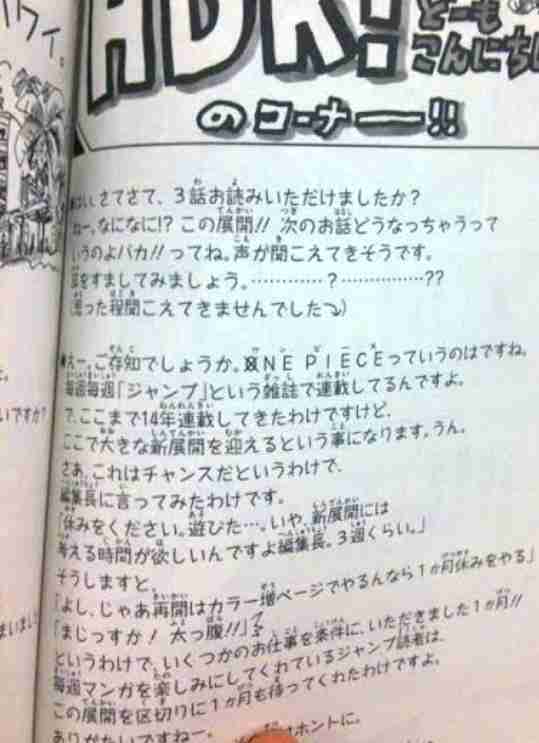 HDK!
どーも
こんにちは
のコーナー!!
はい、さてさて、3話お読みいただけましたか?
ねー、なになに!? この展開!! 次のお話どうなっちゃうって
いうのよバカ!! ってね。声が聞こえてきそうです。
耳をすましてみましょう。…………?……………??
(思った程聞こえてきませんでした⤵)
えー、ご存知でしょうか。ONE PIECEっていうのはですね、
毎週毎週「ジャンプ」という雑誌で連載してるんですよ。
で、ここまで14年連載してきたわけですけど、
ここで大きな新展開を迎えるという事になります。うん。
さあ、これはチャンスだというわけで、
編集長に言ってみたわけです。
「休みをください。遊びた…。いや、新展開には
考える時間が欲しいんですよ編集長。3週くらい。」
そうしますと、
「よし、じゃあ再開はカラー増ページでやるんなら1か月休みをやる」
「まじっすか! 太っ腹!!」
というわけで、いくつかのお仕事を条件に、いただきました1か月!!
毎週マンガを楽しみにしてくれているジャンプ読者は、
この展開を区切りに1か月も待ってくれたわけですよ。
ありがたいですねー。 はホントに。